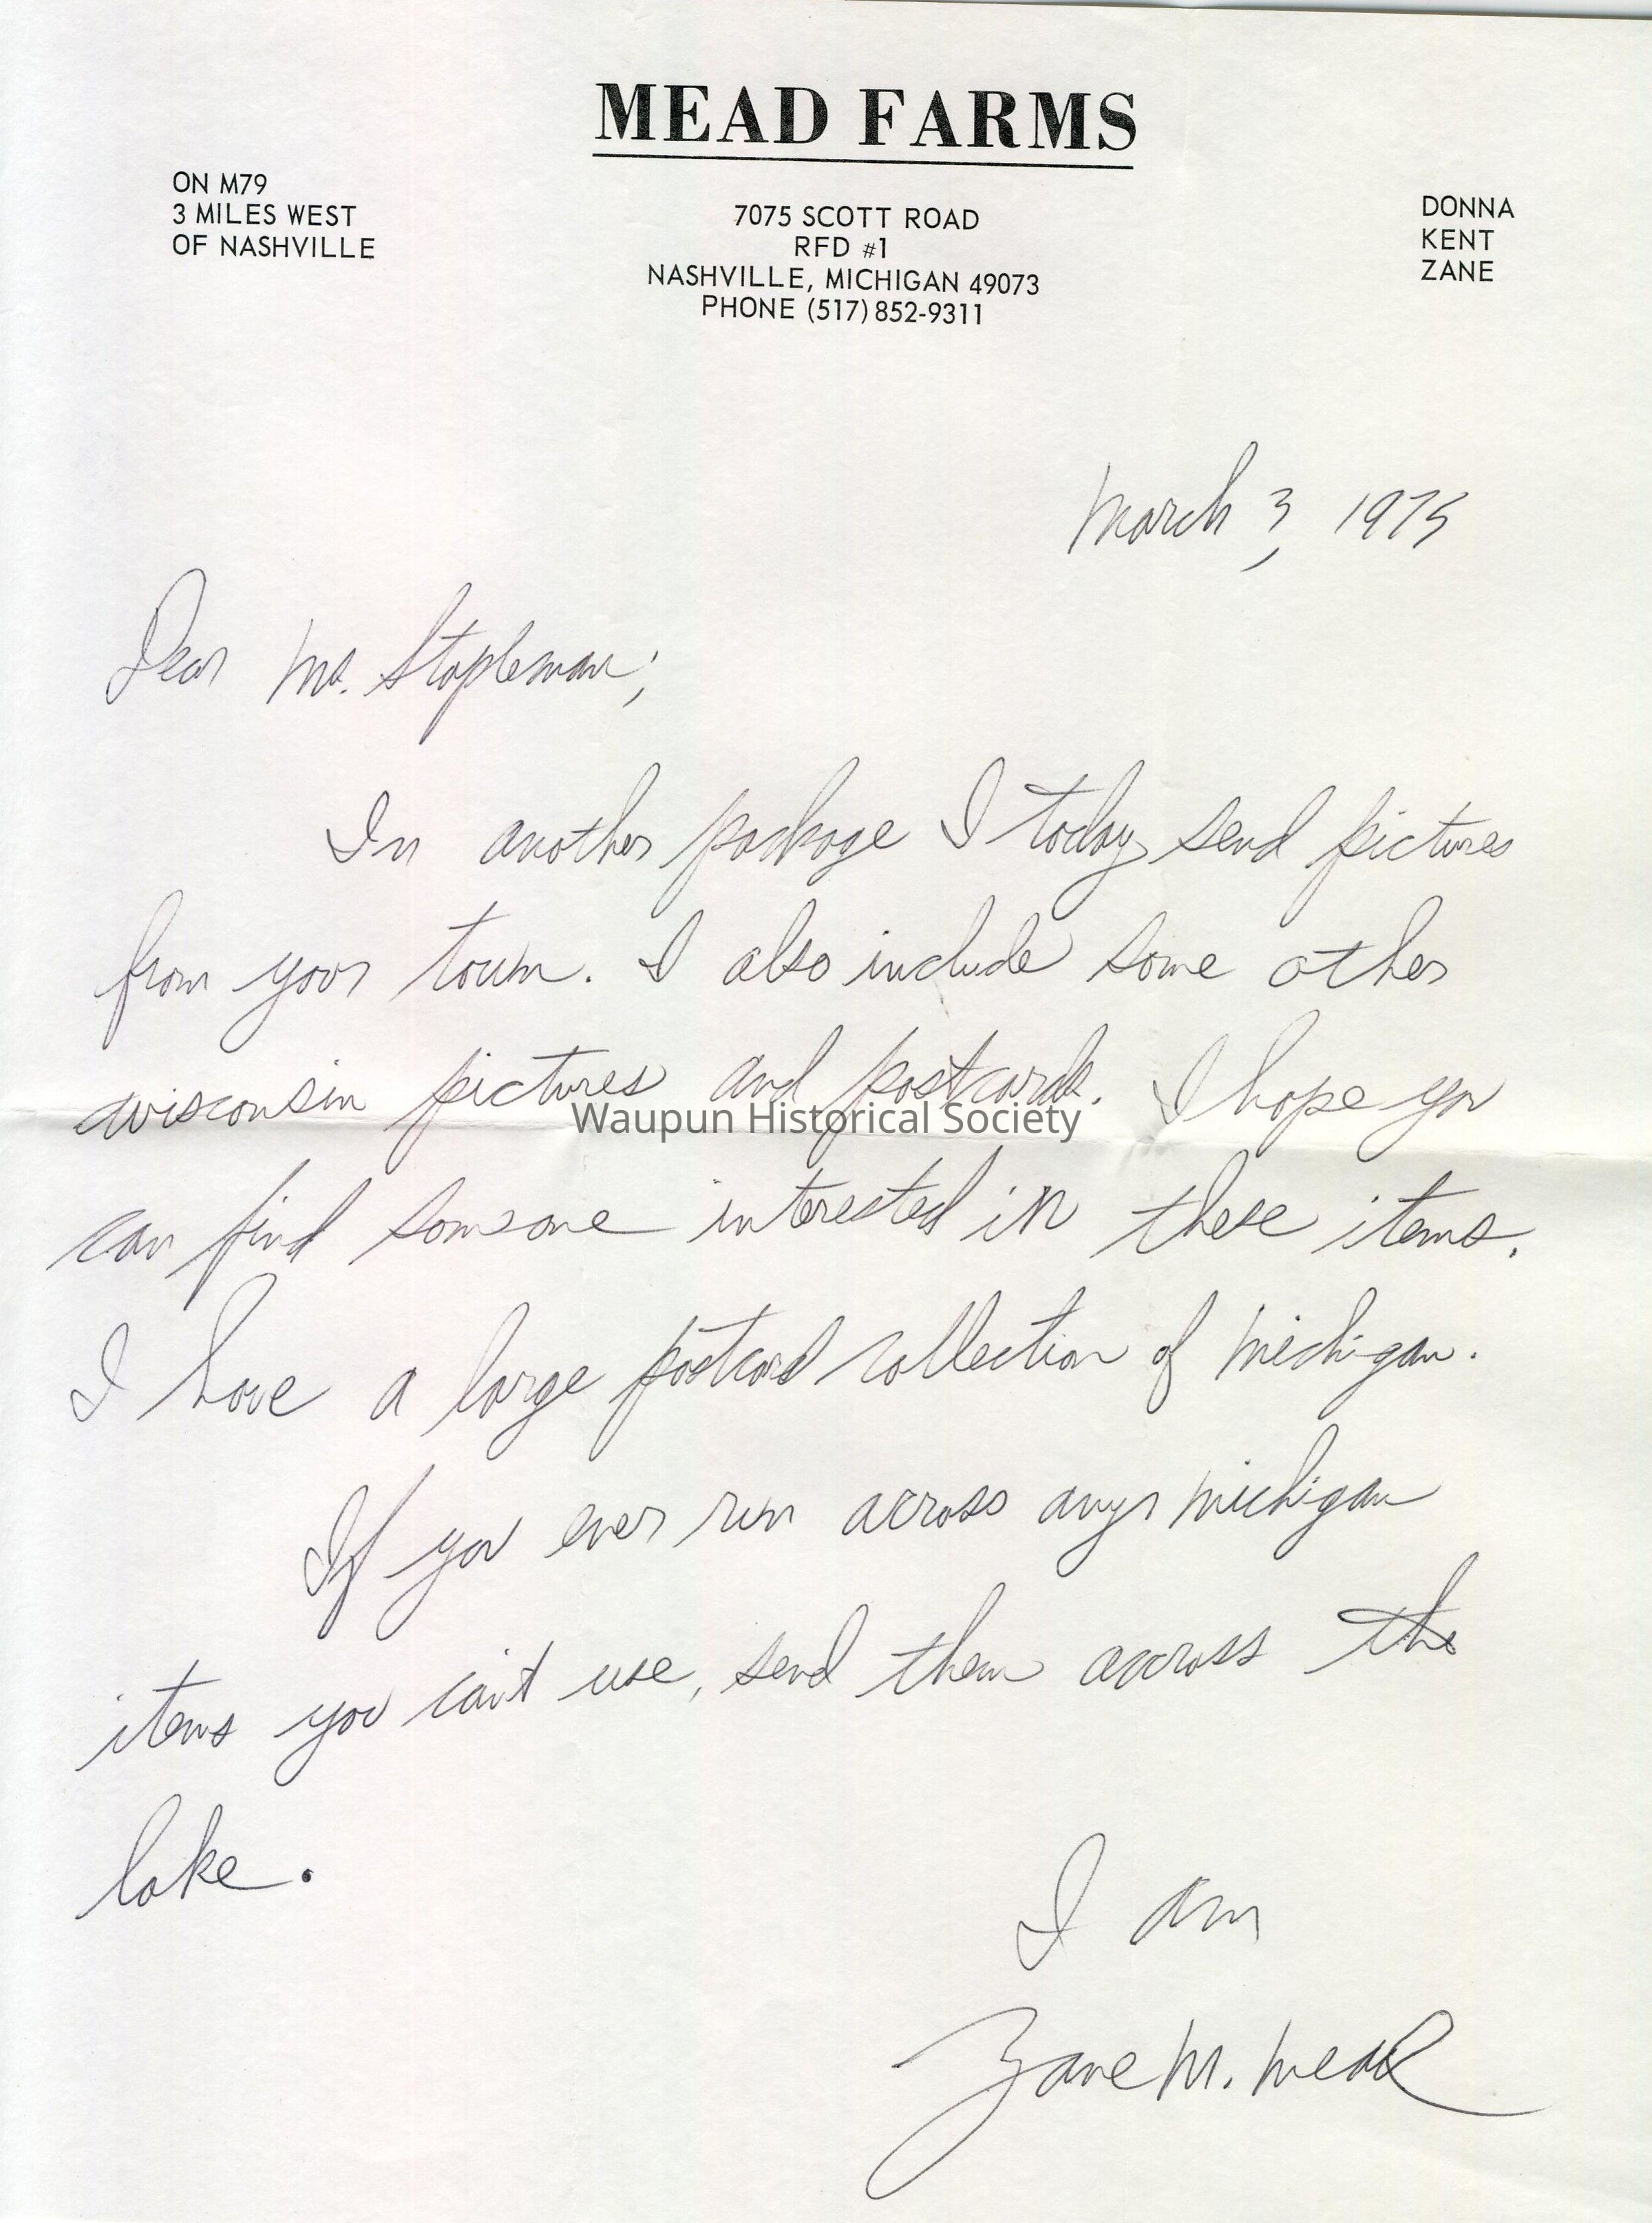 MEAD FARMS
ON M79
3 MILES WEST
OF NASHVILLE
7075 SCOTT ROAD
RFD #1
NASHVILLE, MICHIGAN 49073
PHONE (517) 852-9311
DONNA
KENT
ZANE
March 3, 1975
Dear Ms. Stapleman;
In another package I today send pictures
from your town. I also include some other
wisconsin pictures and postcards. I hope you
Waupun Historical Society
can find someone interested in these items.
I have a large postcard collection of michigan.
If you ever run across any michigan
items you can't use, send them accross the
lake.
I am
Zane M. Mead